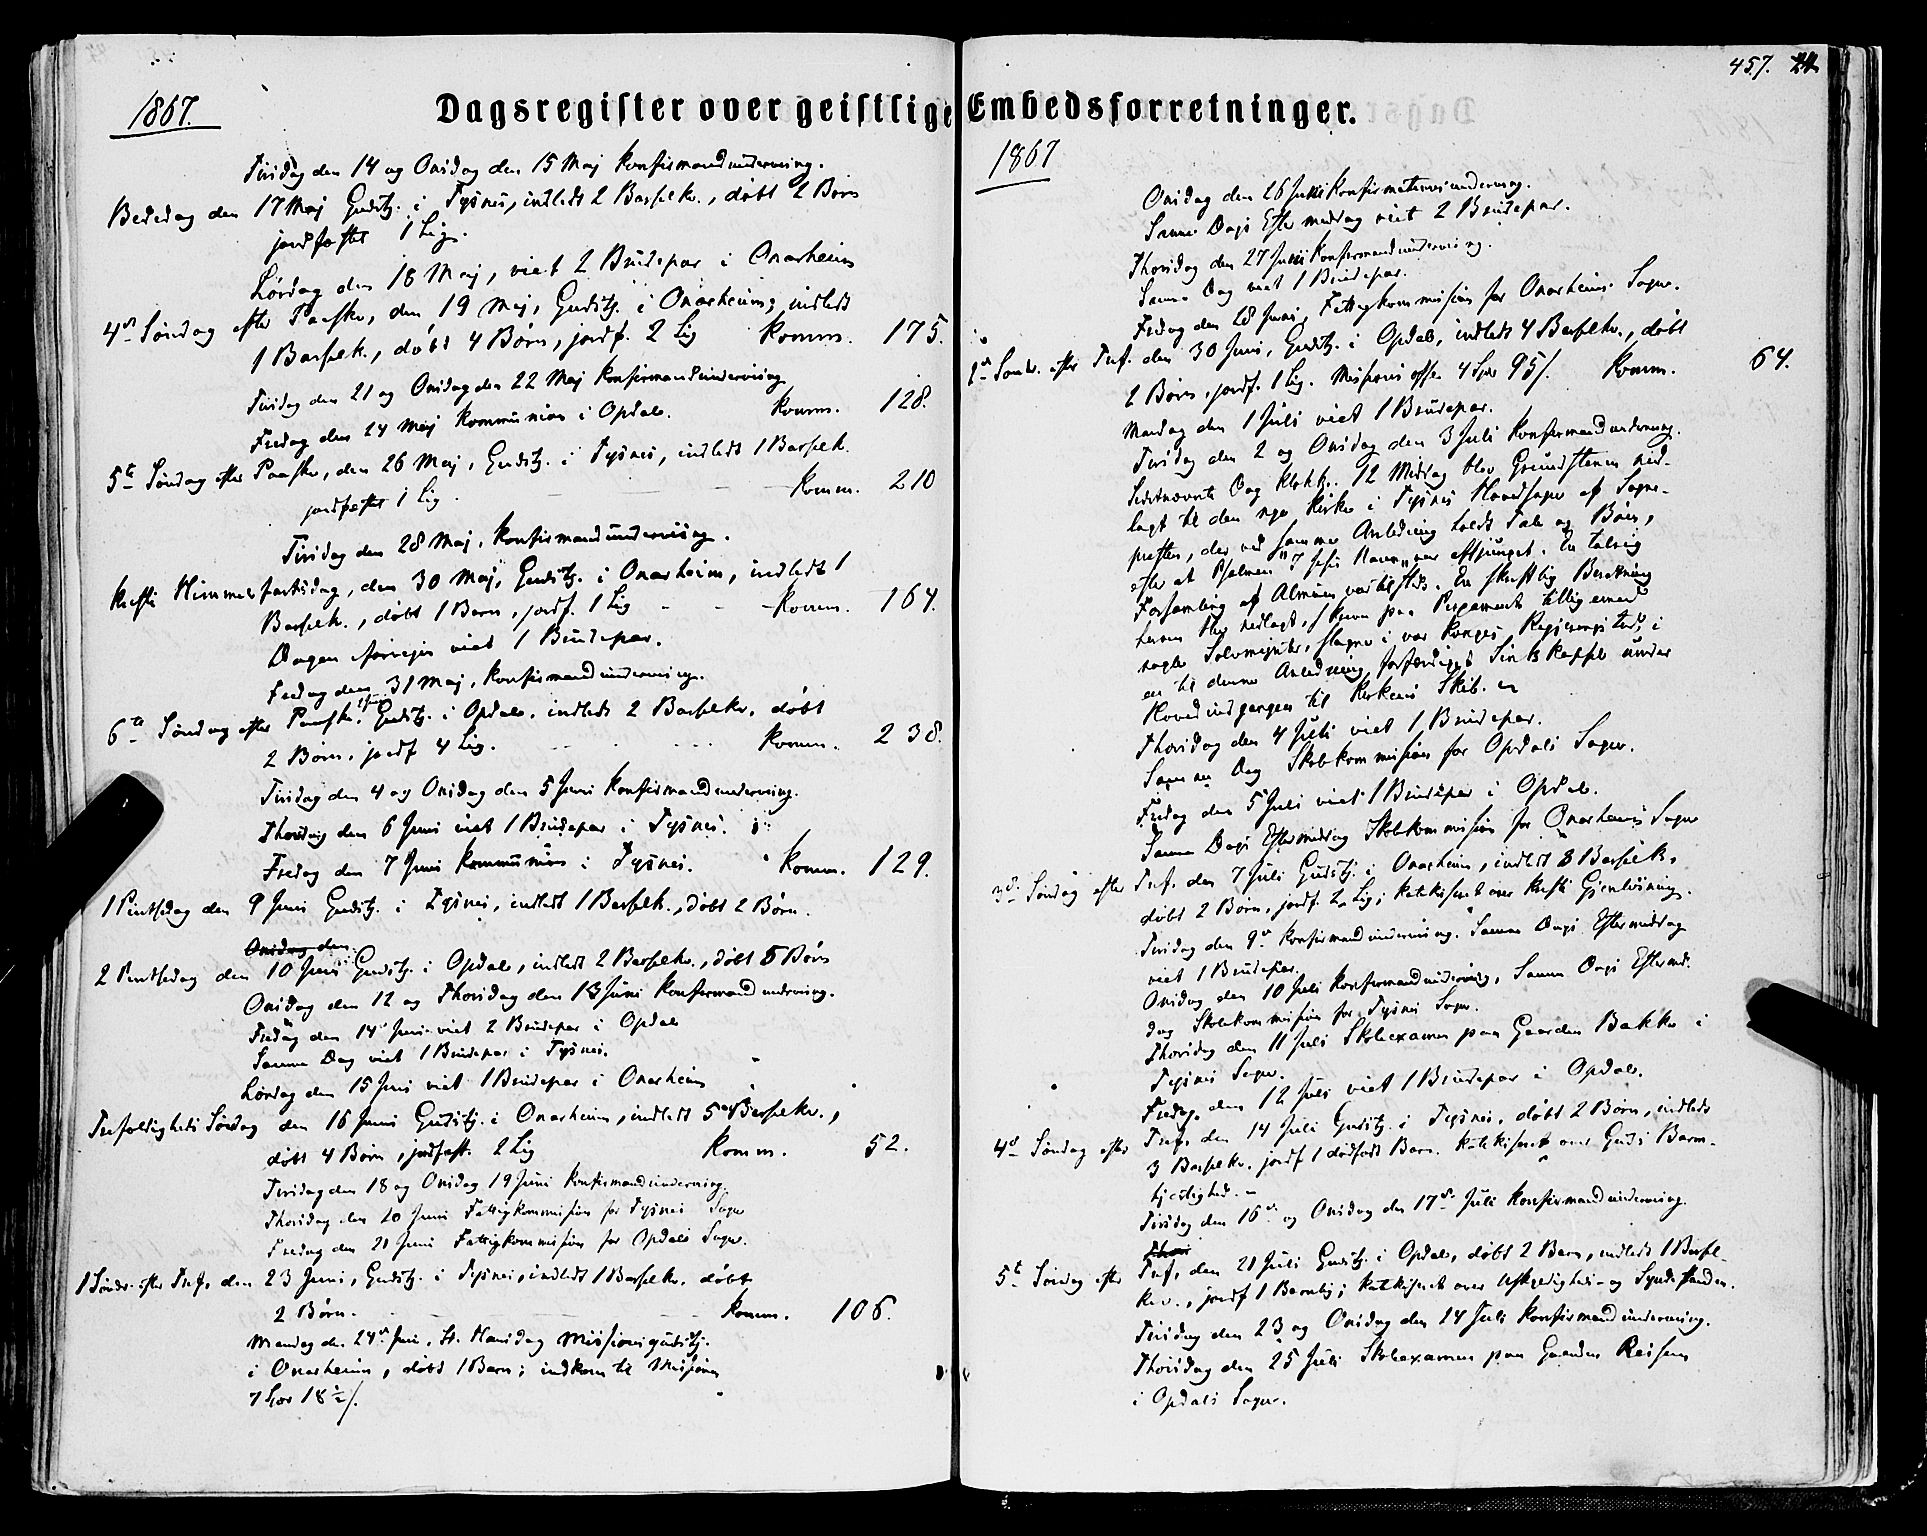 Dagsregister over geistlige Embedsforretninger.
457.
1867.
Tirsdag den 14 og Onsdag den 15 Maj Konfirmandundervisning.
Bededag den 17 Maj Gudstj. i Tysnes, indledt 2 Barselk., døbt 2 Børn
jordfæstet 1 Lig.
Lørdag den 18 Maj, viet 2 Brudepar i Onarheim
4de Søndag efter Paaske, den 19 Maj, Gudstj. i Onarheim; indledt
1 Barselk., døbt 4 Børn, jordf. 2 Lig Komm. 175.
Tirsdag den 21 og Onsdag den 22 Maj Konfirmandundervisning
Fredag den 24 Maj Kommunion i Opdal. Komm. 128.
5te Søndag efter Paaske, den 26 Maj, Gudstj. i Tysnes, indledt 1 Barselk.
jordfæstet 1 Lig. Komm. 210
Tirsdag den 28 Maj, Konfirmandundervisning.
Kristi Himmelfartsdag, den 30 Maj, Gudstj. i Onarheim, indledt 1
Barselk., døbt 1 Barn, jordf. 1 Lig - - Komm. 164.
Dagen forvejen viet 1 Brudepar.
Fredag den 31 Maj, Konfirmandundervisning.
6te Søndag efter Paaske, Gudstj. i Opdal, indledt 2 Barselkv. døbt
2 Børn, jordf 4 Lig. Komm. 238.
Tirsdag den 4 og Onsdag den 5 Juni Konfirmandundervisning.
Thorsdag den 6 Juni viet 1 Brudepar i Tysnes.
Fredag den 7 Juni Kommunion i Tysnes. Komm. 129.
1 Pintsedag den 9 Juni Gudstj. i Tysnes, indledt 1 Barselk., døbt 2 Børn.
Onsdag den
2 Pintsedag den 10 Juni Gudstj. i Opdal, indledt 2 Barselkv., døbt 5 Børn
Onsdag den 12 og Thorsdag den 13 Juni Konfirmandundervisning.
Fredag den 14 Juni viet 2 Brudepar i Opdal
Samme Dag viet 1 Brudepar i Tysnes.
Lørdag den 15 Juni viet 1 Brudepar i Onarheim
Trefoldigheds Søndag den 16 Juni Gudstj. i Onarheim, indledt 5 Barselkv.,
døbt 4 Børn, jordfæst. 2 Lig Komm. 52.
Tirsdag den 18 og Onsdag 19 Juni Konfirmandundervisning.
Thorsdag den 20 Juni Fattigkommision for Tysnes Sogn
Fredag den 21 Juni Fattigkommision for Opdals Sogn.
1 Søndr. efter Tref. den 23 Juni, Gudstj. i Tysnes, indledt 1 Barselkv. døbt
2 Børn. Komm. 106.
Mandag den 24de Juni, St. Hansdag Missionsgudstj.
i Onarheim, døbt 1 Barn; indkom til Missionen
7 Spd 18 ½ /.
1867
Onsdag den 26 Juni Konfirmationsundervisning.
Samme Dags Eftermiddag viet 2 Brudepar.
Thorsdag den 27 Juni Konfirmandundervisning.
Samme Dag viet 1 Brudepar.
Fredag den 28 Juni, Fattigkommision for Onarheims Sogn.
2den Sønd. efter Tref. den 30 Juni, Gudstj. i Opdal, indledt 4 Barselkv., døbt
2 Børn, jordf. 1 Lig. Missions offer 4 Spd 95/. Komm. 64.
Mandag den 1 Juli viet 1 Brudepar.
Tirsdag den 2 og Onsdag den 3 Juli Konfirmandundervisning.
Sidstnævnte Dag Klokk. 12 Middag blev Grundstenen ned-
lagt til den nye Kirke i Tysnes Hovedsogn af Sogne-
presten, der ved samme Anledning holdt Tale og Bøn,
efter at Psalmen "I Jesu Navn" var afsjunget. En talrig
Forsamling af Almuen var tilstede. En skriftlig Beretning
herom blev nedlagt, skreven paa Pergament tilligemed
nogle Solvmynter, slagne i vor Konges Regjeringstid, i
en til denne Anledning forfærdiget Sinkkapsel under
Hovedindgangen til Kirkens Skib.
Thorsdag den 4 Juli viet 1 Brudepar.
Samme Dag Skolekommision for Opdals Sogn.
Fredag den 5 Juli viet 1 Brudepar i Opdal.
Samme Dags Eftermiddag Skolekommision for Onarheims Sogn
3de Søndag efter Tref. den 7 Juli Gudstj. i Onarheim, indledt 3 Barselk.
døbt 2 Børn, jordf. 2 Lig; katekiseret over Kristi Gjenløsning.
Tirsdag den 9de Konfirmandundervisning. Samme Dags Eftermiddag
viet 1 Brudepar.
Onsdag den 10 Juli Konfirmandundervisning, Samme Dags Eftermid-
dag Skolekommision for Tysnes Sogn.
Thorsdag den 11 Juli Skoleexamen paa Gaarden Bakke i
Tysnes Sogn.
Fredag den 12 Juli viet 1 Brudepar i Opdal.
4de Søndag efter Tref. den 14 Juli Gudstj. i Tysnes, døbt 2 Børn, indledt
3 Barselkv. jordf 1 dødfødt Barn. Katekiseret over Guds Barm-
hjertighed. -
Tirsdag den 16de og Onsdag den 17de Juli Konfirmandundervisning.
Thors
5te Søndag efter Tref. den 21 Juli Gudstj. i Opdal, døbt 2 Børn, indledt 1 Barsel-
kv., jordf 1 Barnlig; katekiseret over Uskyldigheds- og Syndestanden.
Tirsdag den 23 og Onsdag den 24 Juli Konfirmandundervisning.
Thorsdag den 25 Juli Skoleexamen paa Gaarden Reisen
i Opdals Sogn.